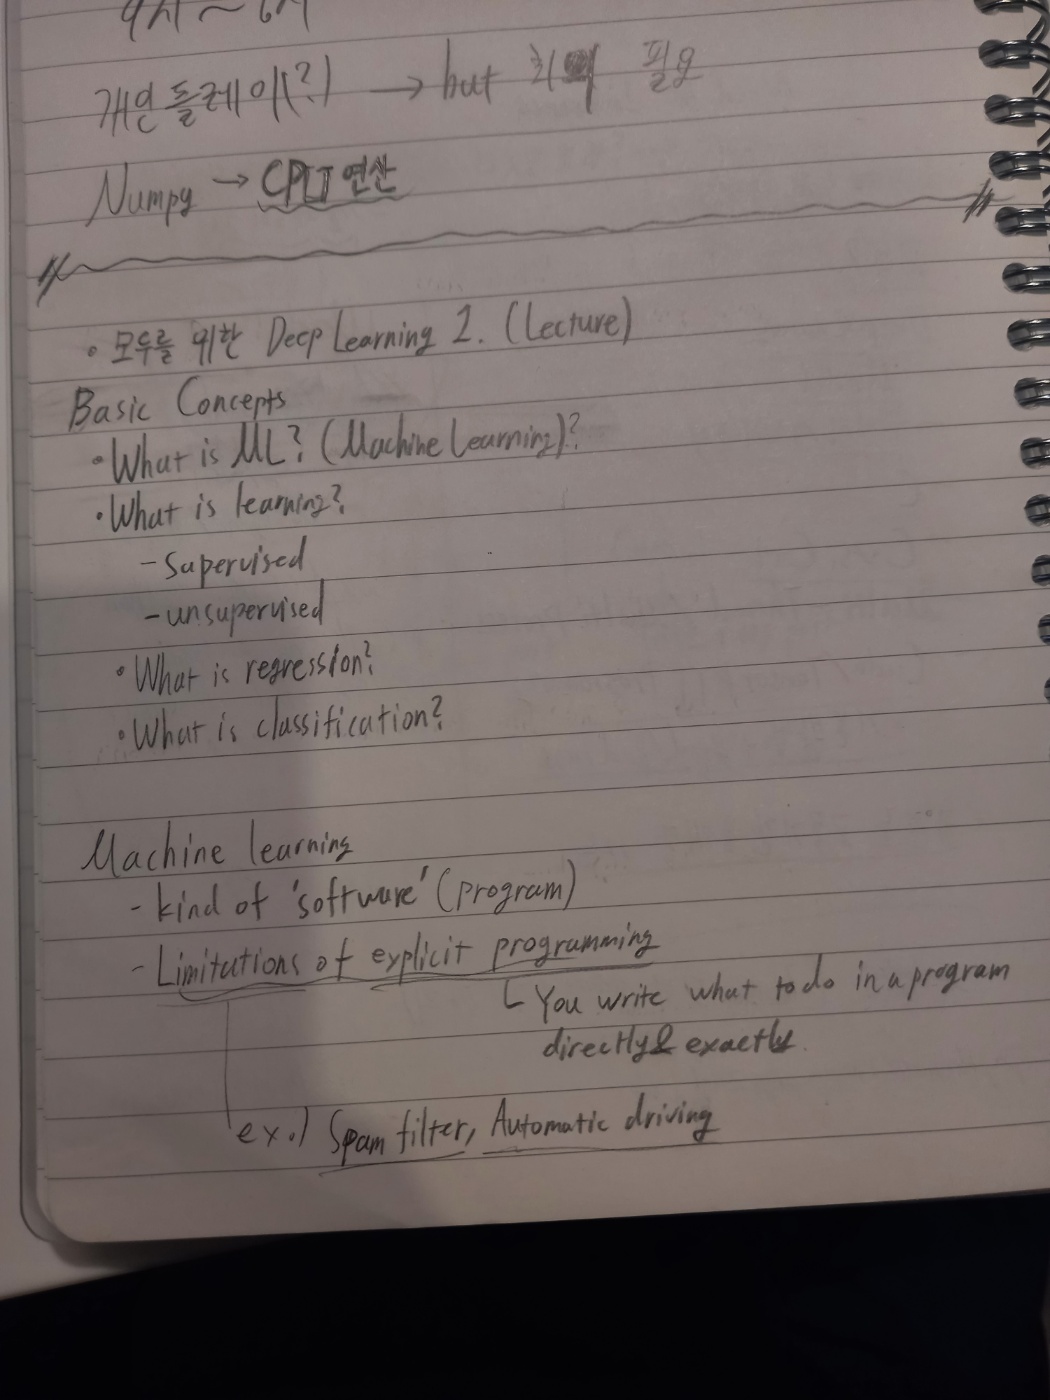 개인 플레이(?) → but 필요
Numpy → CPU 연산
• 모두를 위한 Deep Learning 1. (Lecture)
Basic Concepts
• What is ML? (Machine Learning)?
• What is learning?
- supervised
- unsupervised
• What is regression?
• What is classification?
Machine learning
- kind of 'software' (program)
- Limitations of explicit programming
└ You write what to do in a program
directly & exactly.
ex.) Spam filter, Automatic driving